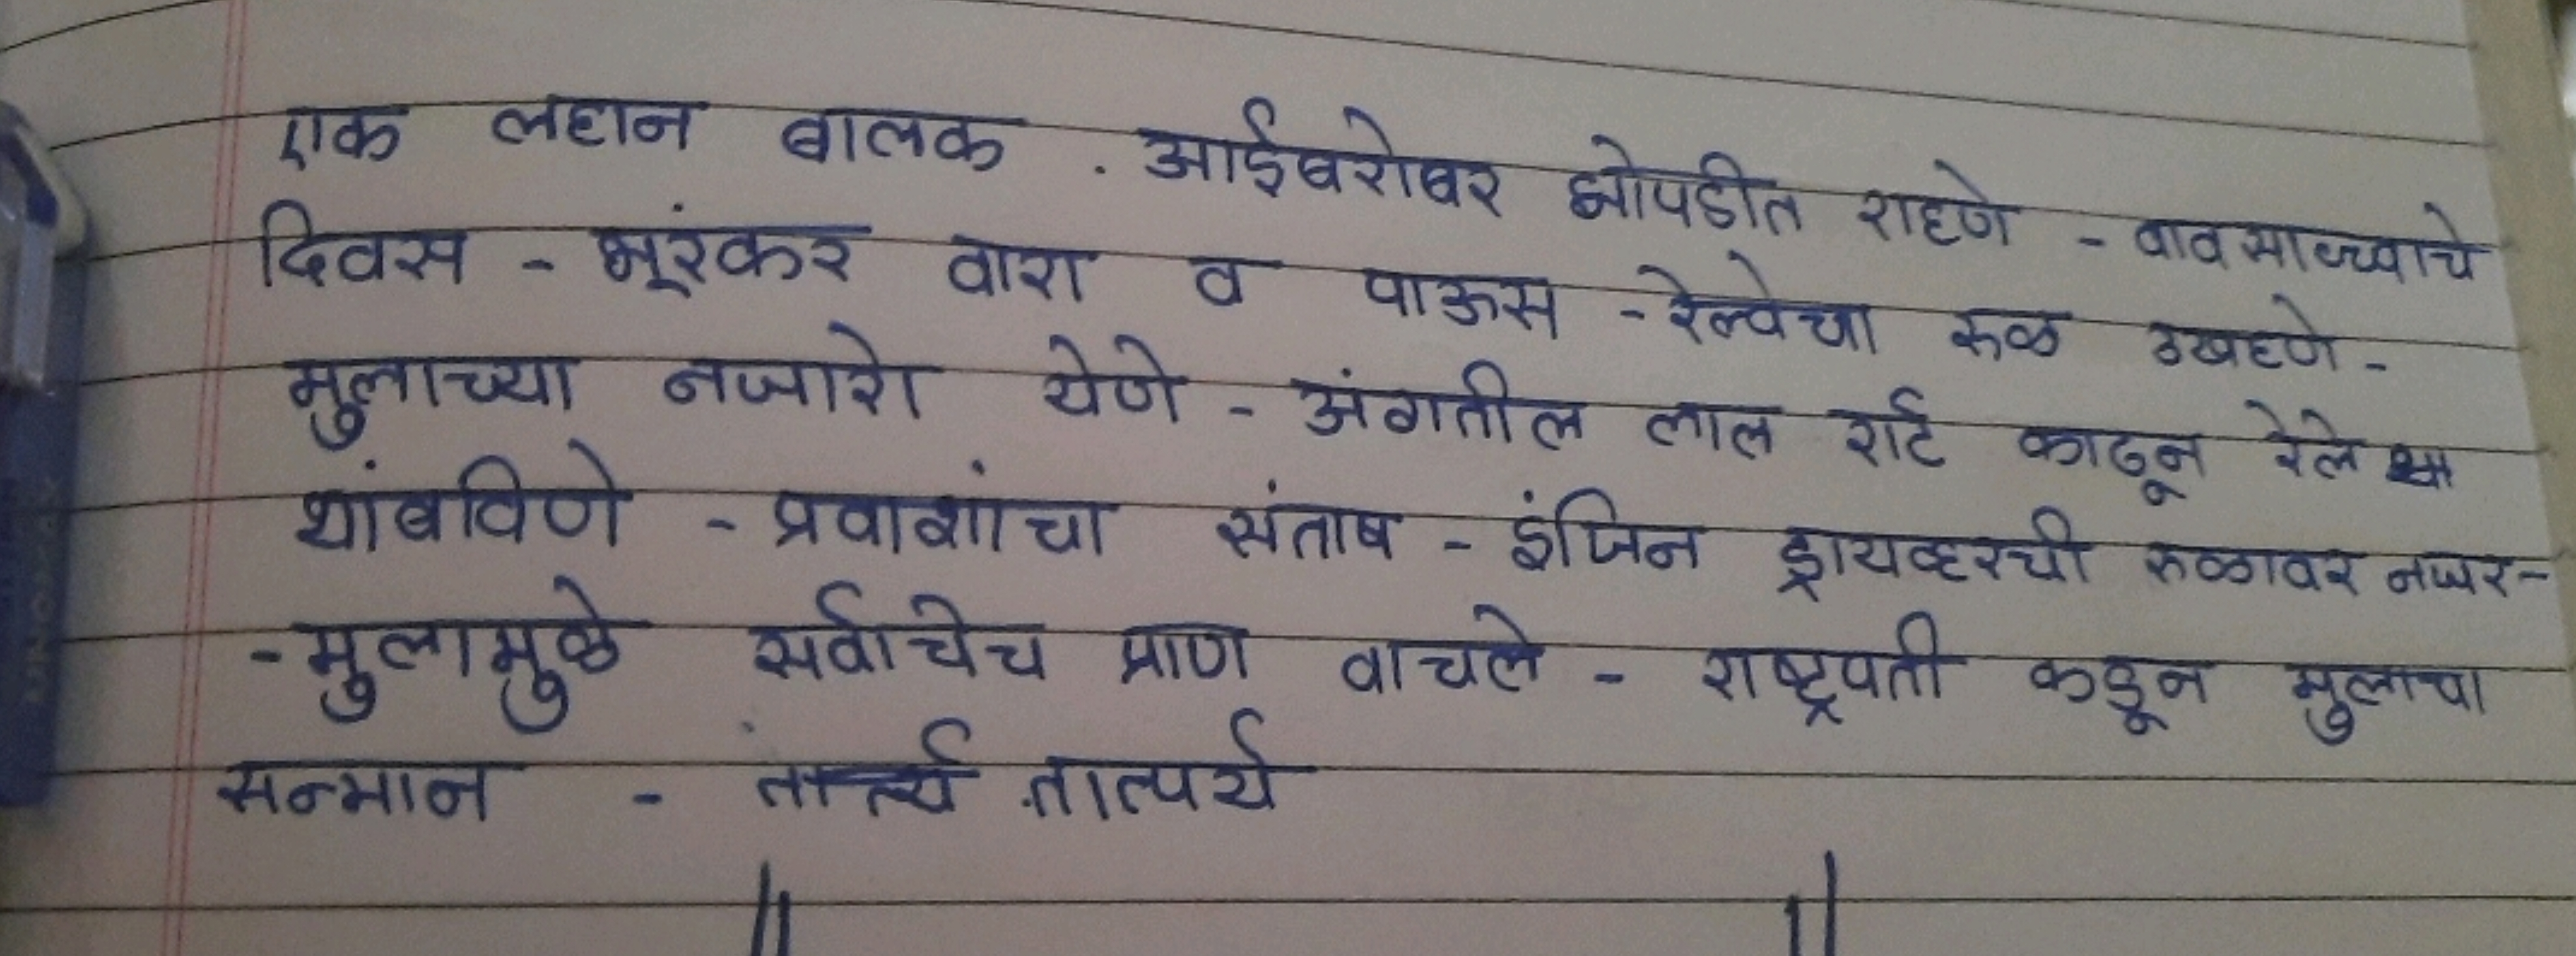 एक लहान बालक . आईबरोबर झोपडीत राहणे - पावसाळ्याचे
दिवस - भयंकर वारा व पाऊस - रेल्वेचा रुळ उखडणे -
मुलाच्या नजारेो येणे - अंगातील लाल शर्ट काढून रेल्वे
थांबविणे - प्रवाशांचा संताप - इंजिन ड्रायव्हरची रुळावर नजर -
- मुलामुळे सर्वांचेच प्राण वाचले - राष्ट्रपती कडून मुलाचा
सन्मान - तात्पर्य